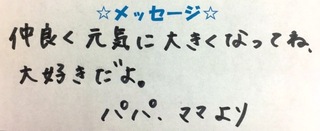 ☆メッセージ☆
仲良く元気に大きくなってね、
大好きだよ。
パパ、ママより